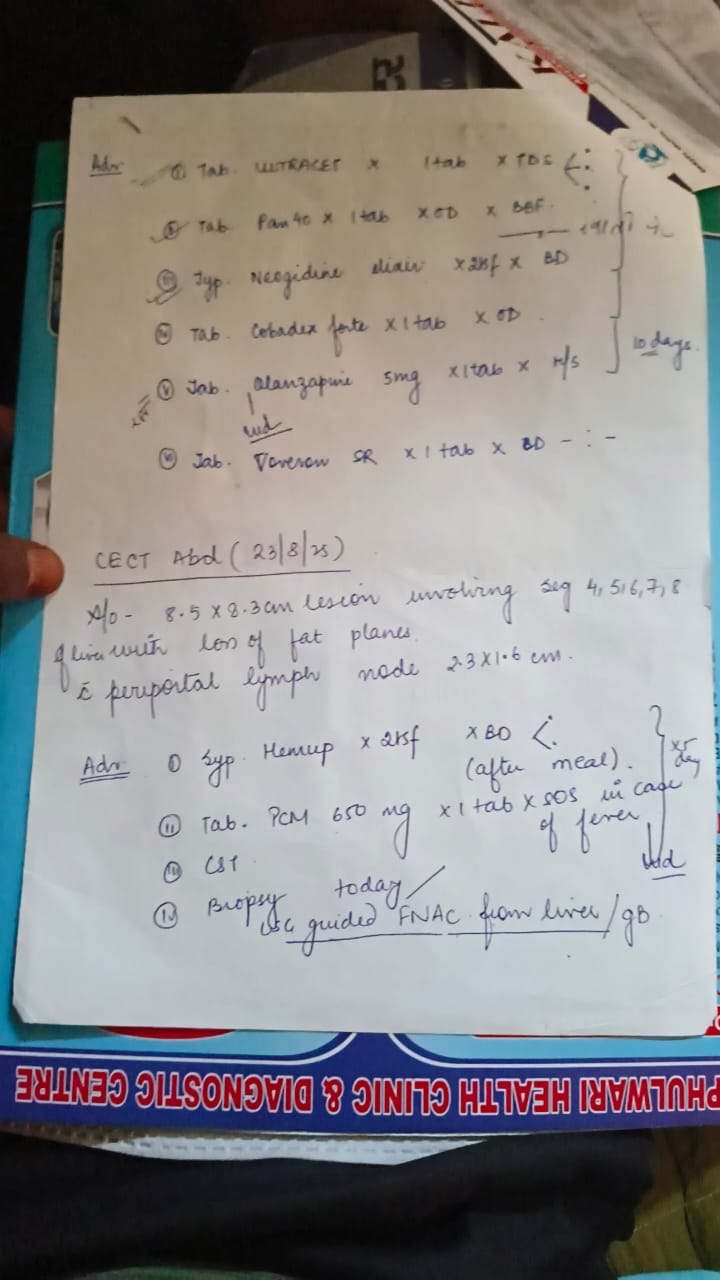 Adv ① Tab. ULTRACET x 1tab x TDS
② Tab Pan 40 x 1tab x OD x BBF.
③ Syp. Neogidine elixir x 2tsf x BD
④ Tab. Cobadex forte x 1 tab x OD.
10 days.
⑤ Tab. Olanzapine 5mg x 1tab x H/S
⑥ Tab. SR x 1 tab x BD - : -
CECT Abd (23/8/25)
8.5 x 8.3cm lesion involving seg 4, 5, 6, 7, 8
of liver with loss of fat planes.
c̄ periportal lymph node 2.3x1.6 cm.
Adv ① Syp. Hemup x 2tsf x BD
(after meal).
x5 day
② Tab. PCM 650 mg x 1 tab x SOS in case
of fever
③ CST
④ Biopsy today /
USG guided FNAC from liver / GB.
PHULWARI HEALTH CLINIC & DIAGNOSTIC CENTRE